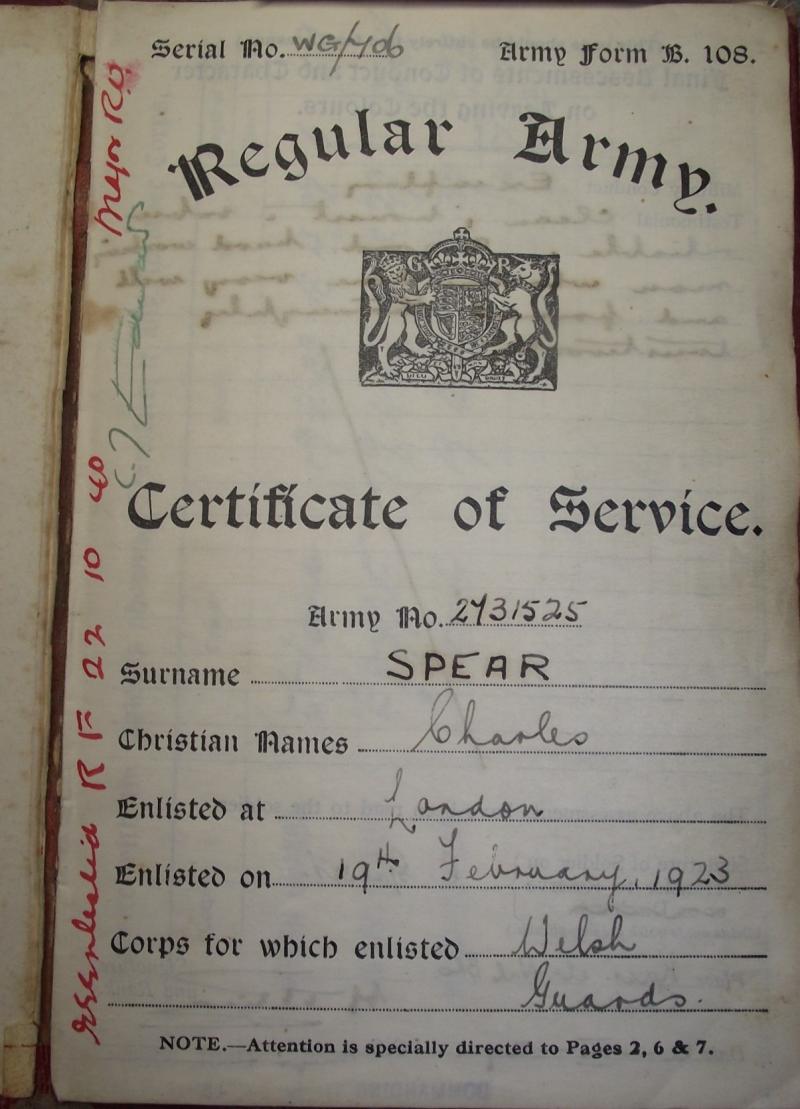 Serial No. WG/406 Army Form B. 108.
Regular Army.
G R
Certificate of Service.
Army No. 2731525
Surname SPEAR
Christian Names Charles
Enlisted at London
Enlisted on 19th February, 1923
Corps for which enlisted Welsh
Guards.
NOTE.—Attention is specially directed to Pages 2, 6 & 7.
R F 22 10 40
Major RO